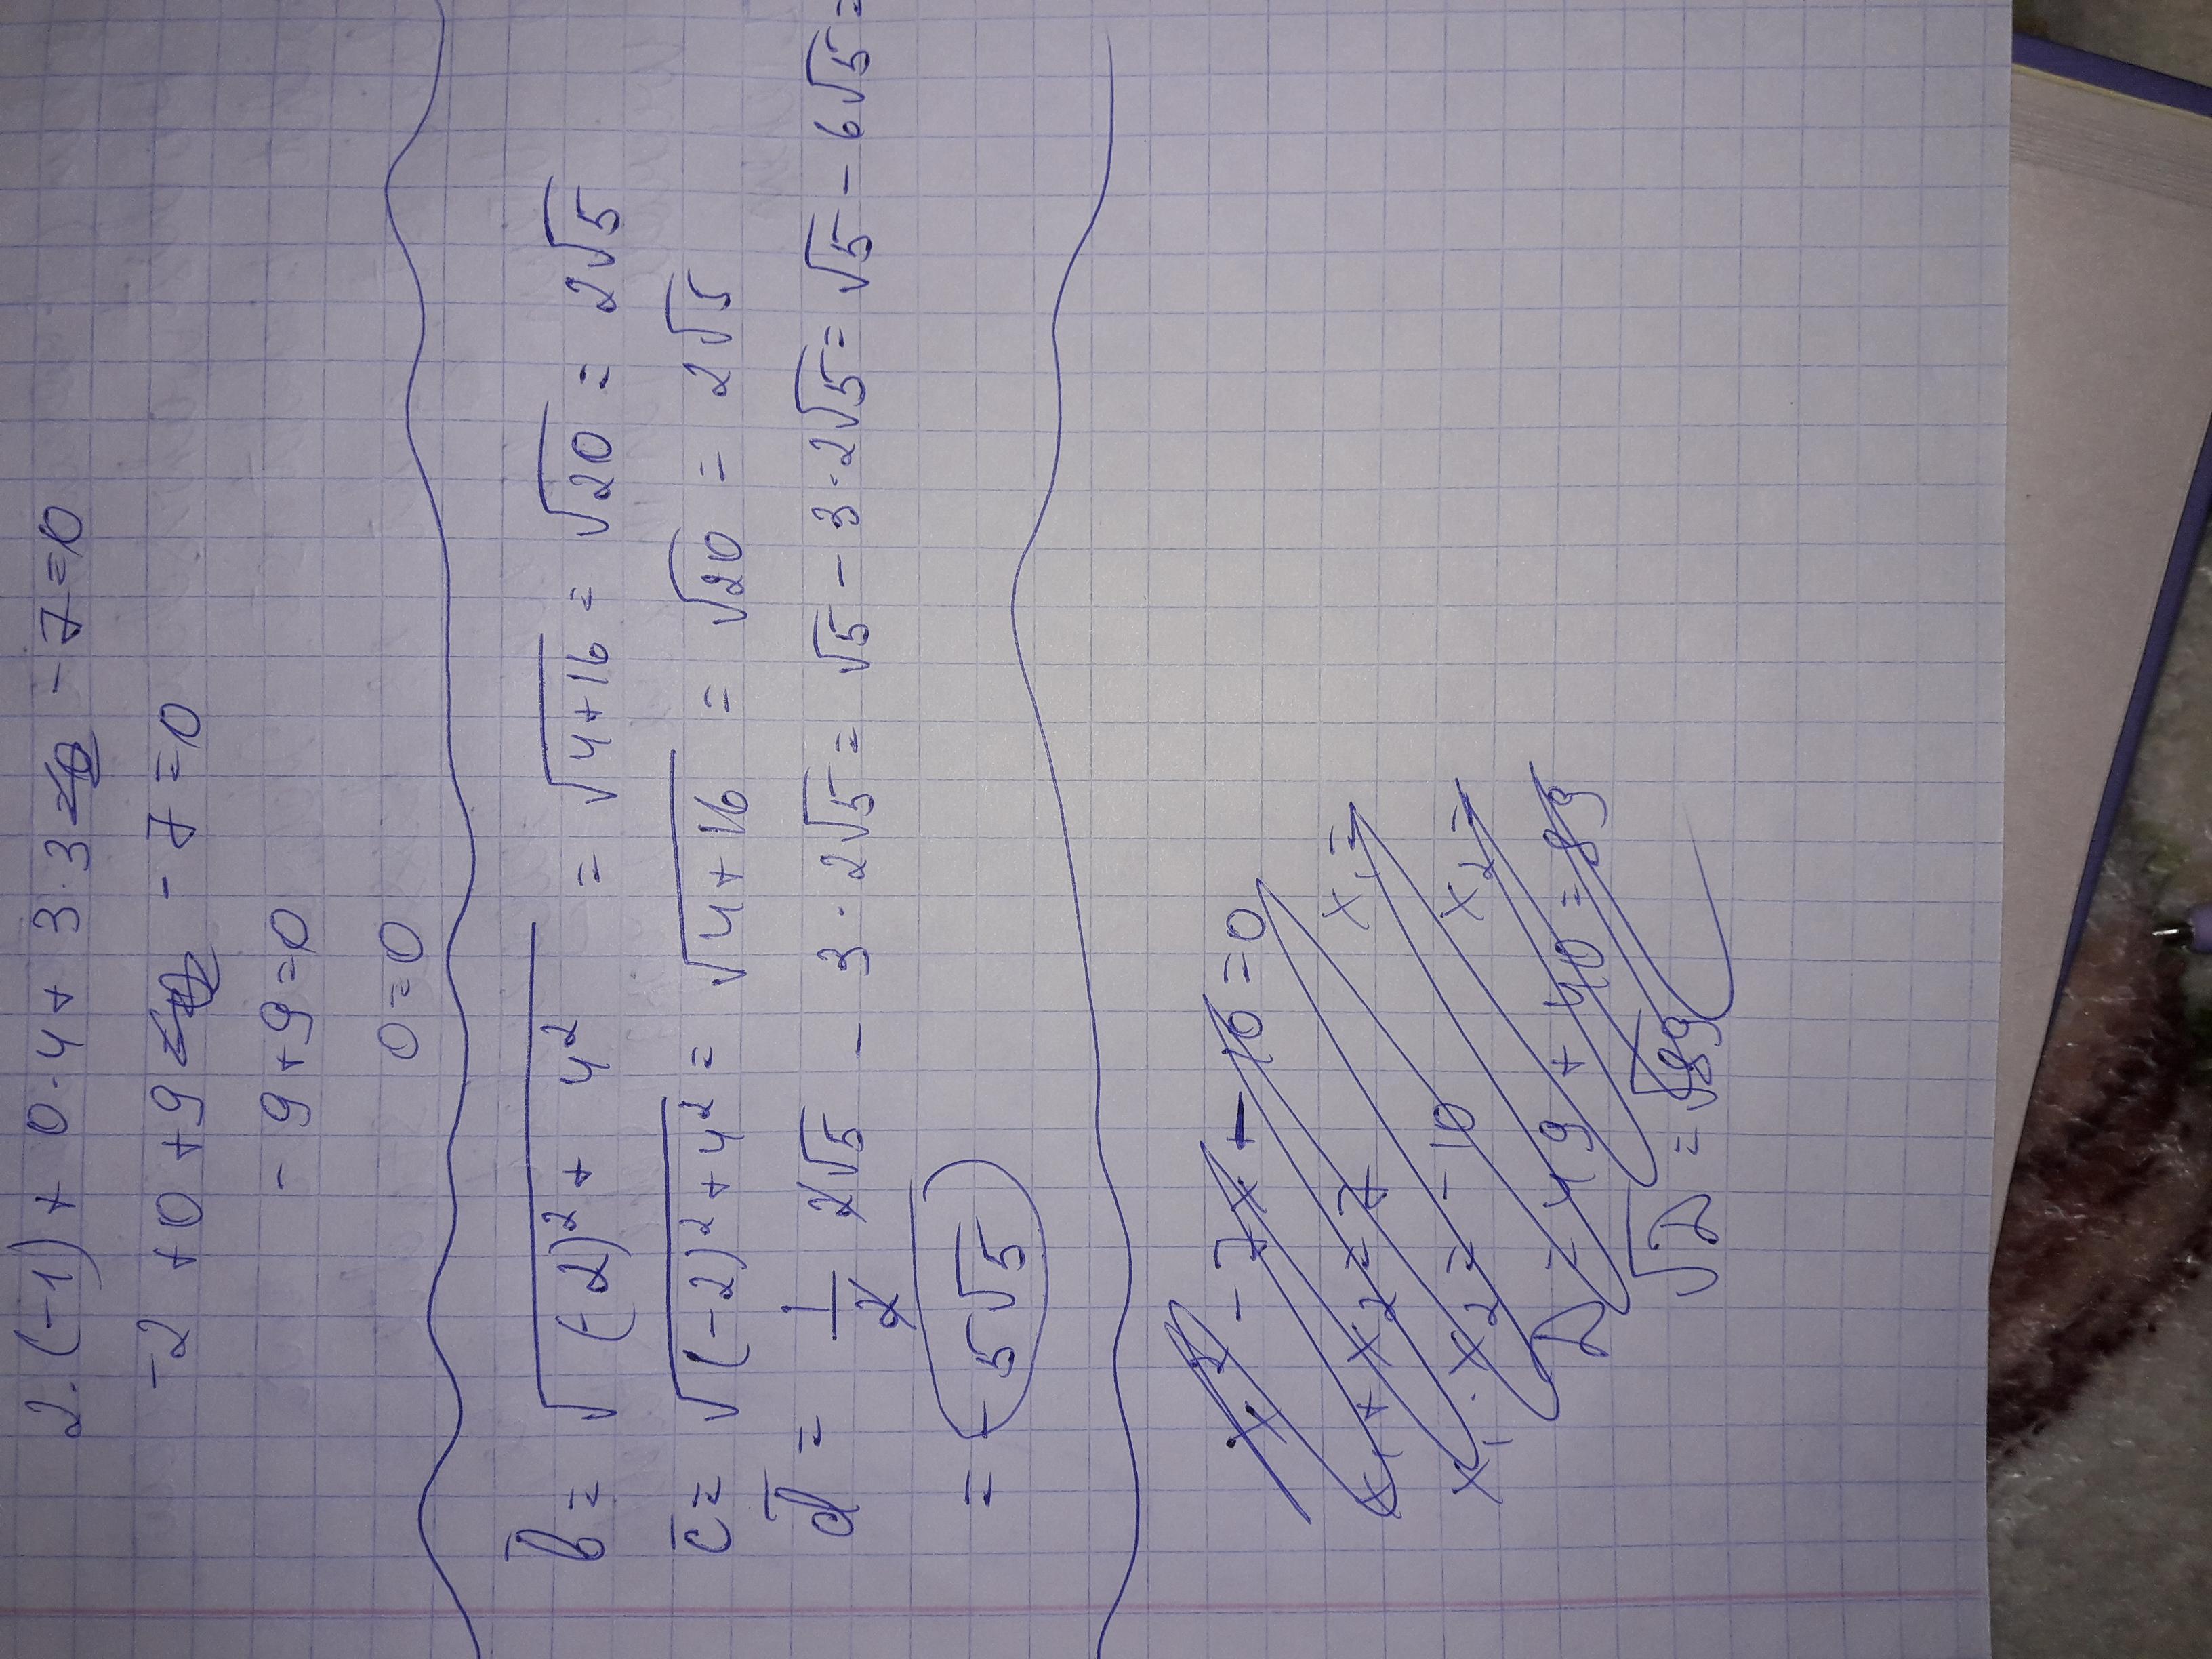 2·(-1) + 0·4 + 3·3 - 7 = 0
-2 + 0 + 9 - 7 = 0
-9 + 9 = 0
0 = 0
b̅ = √((-2)² + 4²) = √(4+16) = √20 = 2√5
c̅ = √((-2)² + 4²) = √(4+16) = √20 = 2√5
d̅ = 1/2 2√5 - 3·2√5 = √5 - 3·2√5 = √5 - 6√5 =
= -5√5
x² - 7x - 10 = 0
x₁ + x₂ = 7 x₁ =
x₁ · x₂ = -10 x₂ =
D = 49 + 40 = 89
√D = √89